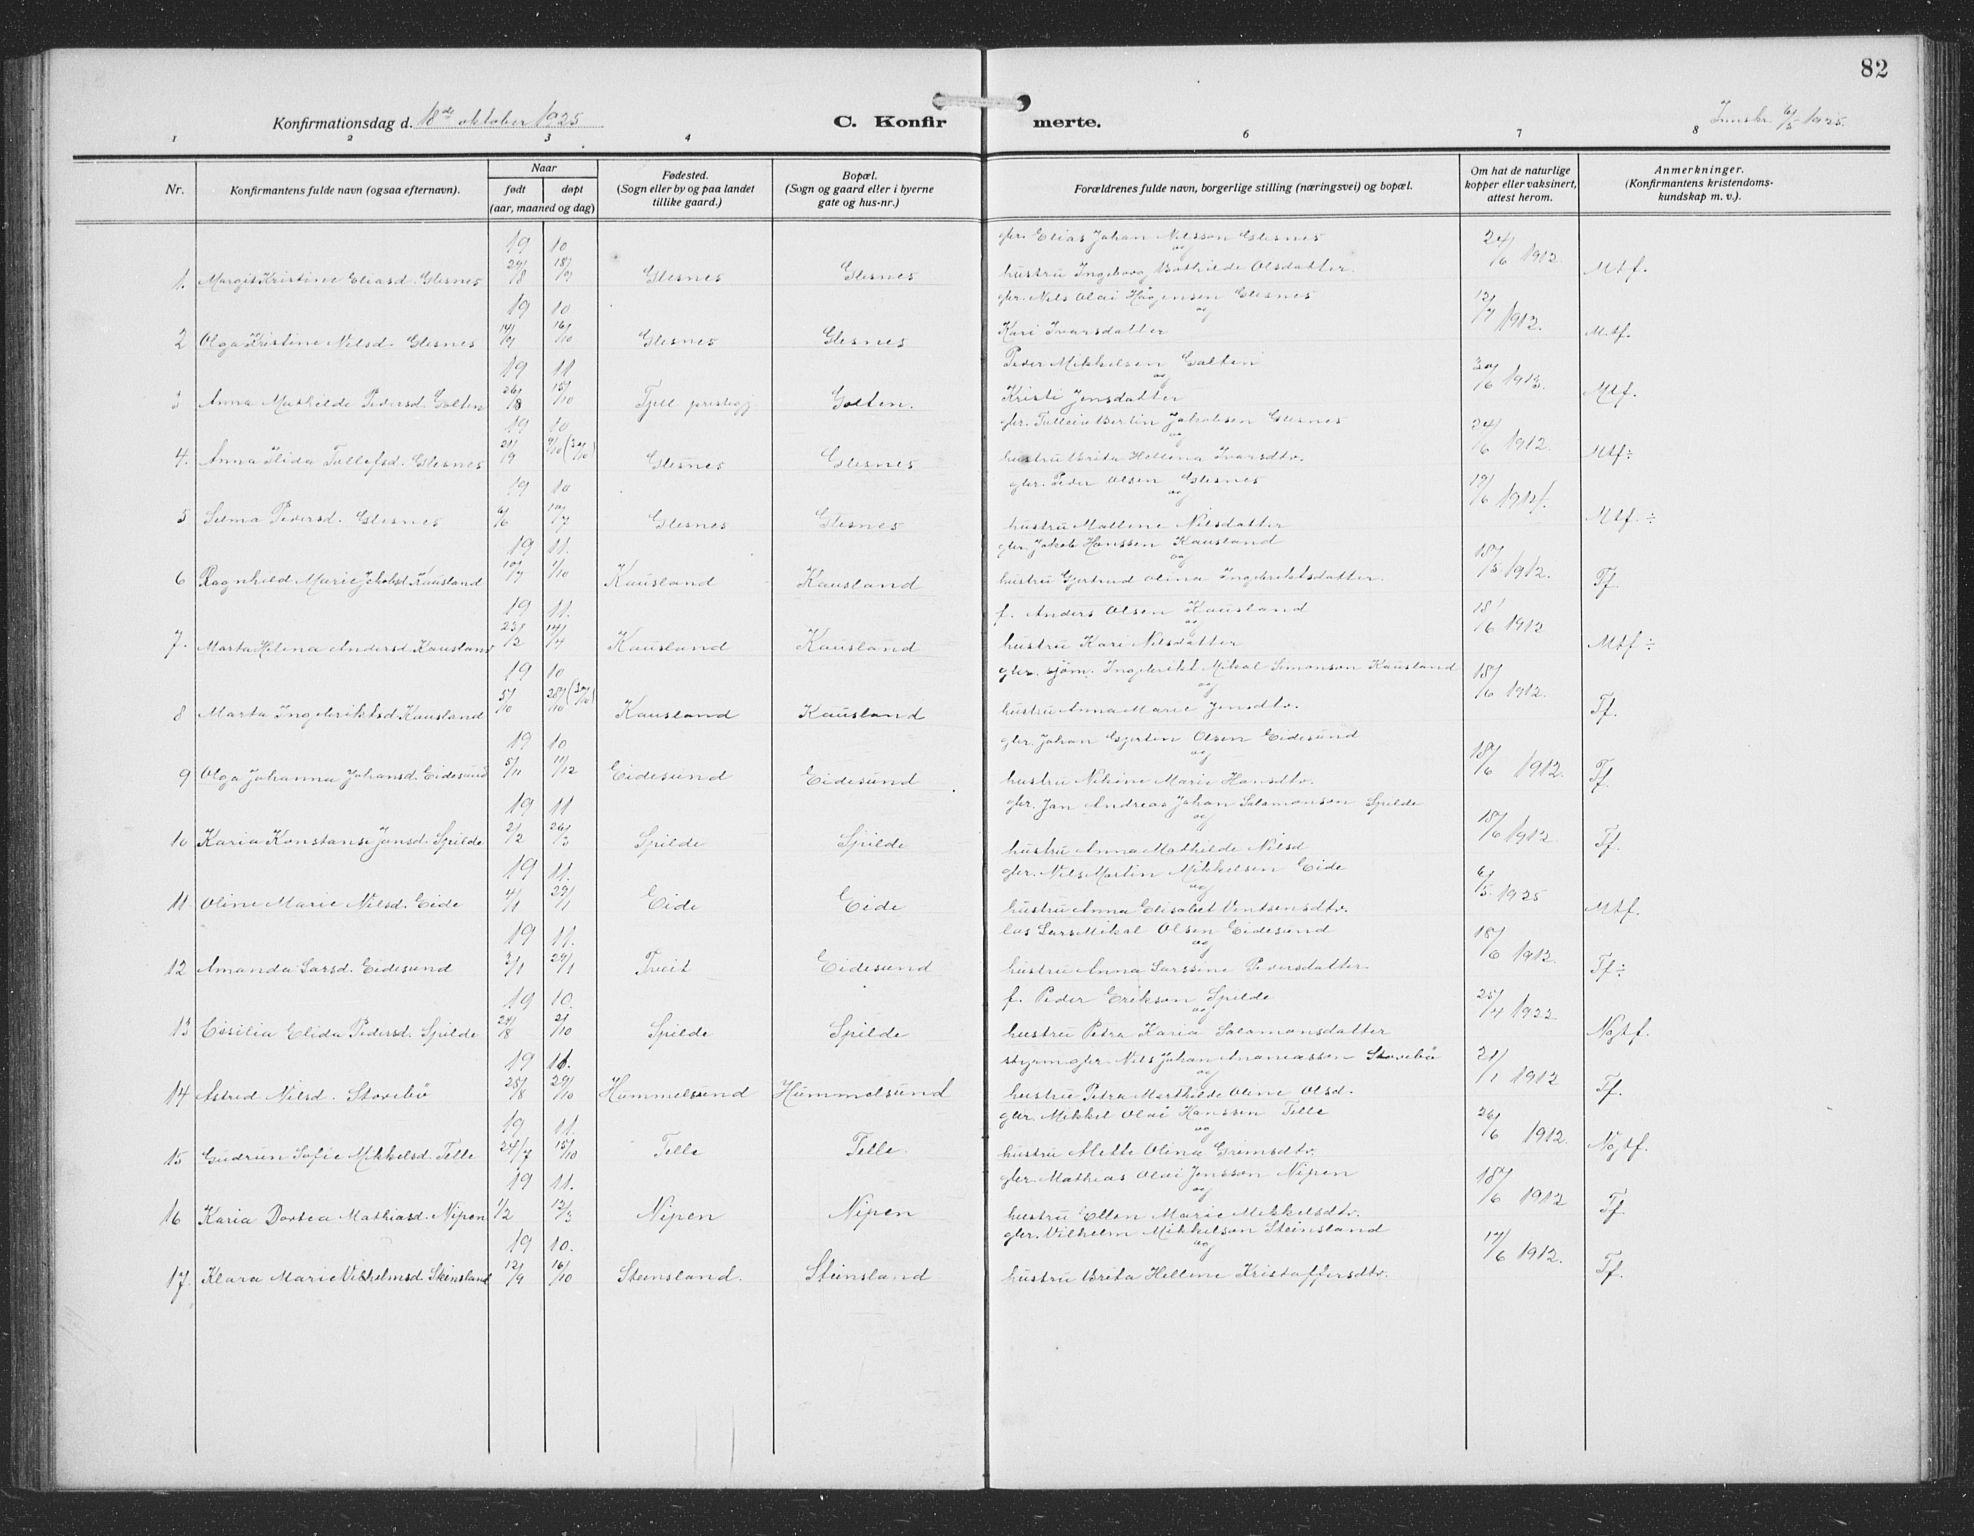 82
Konfirmationsdag d. 18de oktober 1925
C. Konfirmerte.
Innskr. 6/5 1925.
1 2 3 4 6 7 8
Nr.
Konfirmantens fulde navn (ogsaa efternavn).
Naar
født døpt
(aar, maaned og dag)
Fødested.
(Sogn eller by og paa landet
tillike gaard.)
Bopæl.
(Sogn og gaard eller i byerne
gate og hus-nr.)
Forældrenes fulde navn, borgerlige stilling (næringsvei) og bopæl.
Om hat de naturlige
kopper eller vaksinert,
attest herom.
Anmerkninger.
(Konfirmantens kristendoms-
kundskap m. v.).
19 10 gbr. Elias Johan Nilsson Glesnes og
1. Margit Kristine Eliasd. Glesnes 29/8 18/9 Glesnes Glesnes hustru Ingeborg Bothilde Olsdatter. 24/6 1912 Mtf.
19 10 gbr. Nils Olai Hågensen Glesnes og
2 Olga Kristine Nilsd. Glesnes 14/9 16/10 Glesnes Glesnes Kari Ivarsdatter 1912. Mtf.
19 11 Peder Mikkelsen Golten og
3 Anna Mathilde Pedersd. Golten 26/8 15/10 Fjell prestegj. Golten. Kristi Jensdatter 1913. Mtf.
19 10 gbr. Berlin Jakobsen Glesnes og
4. Anna Glesnes 21/9 9/10 (30/10) Glesnes Glesnes hustru Brita Hellena Ivarsdtr. 24/6 1912. Mtf÷
19 10 gbr. Peder Olsen Glesnes og
5 Selma Pedersd. Glesnes 6/6 10/7 Glesnes Glesnes hustru Mallene Nilsdatter Mtf.÷
19 11. gbr. Jakob Hanssen Kausland og
6 Ragnhild Marie Jakobsd. Kausland 10/7 1/10 Kausland Kausland hustru Gjertrud Olina Ingebriktsdatter. 18/5 1912. Tf.
19 11. f. Anders Olsen Kausland og
7. Marta Helena Andersd. Kausland 23/2 14/4 Kausland Kausland hustru Kari Nilsdatter 18/6 1912 Mtf÷
19 10 gbr. sjøm. Ingebrikt Mikal Simonson Kausland og
8 Marta Ingebriktsd. Kausland 5/10 28/10 (30/10) Kausland Kausland hustru Anna Marie Jensdtr. 18/6 1912. Tf.
19 10 gbr. Johan Gjertin Olsen Eidesund og
9 Olga Johanna Johansd. Eidesund 5/11 11/12 Eidesund Eidesund hustru Nikine Marie Hansdtr. 18/6 1912. Tf.
19 11 gbr. Jan Andreas Johan Salamonson Spilde og
10 Karia Konstanse Jansd. Spilde 2/2 26/3 Spilde Spilde hustru Anna Mathilde Nilsd 18/6 1912. Tf.
19 11. gbr. Nils Martin Mikkelsen Eide og
11 Oline Marie Nilsd. Eide 4/1 29/1 Eide Eide hustru Anna Elisabet Ventsensdtr. 6/5. 1925 Mtf.
19 11. Lars Mikal Olsen Eidesund og
12 Amanda Larsd. Eidesund 3/1 29/1 Tveit Eidesund hustru Anna Larssine Pedersdatter 18/6 1912. Tf÷
19 10. f. Peder Erikson Spilde og
13 Cesilia Elida Pedersd. Spilde 24/8 2/10 Spilde Spilde hustru Petra Karia Salamonsdatter 25/4 1922 Ngtf.
19 11. styrm. gbr. Nils Johan Ananiassen Storebø og
14 Astrid Nilsd. Storebø 25/8 29/10 Hummelsund Hummelsund hustru Petra Marthilde Oline Olsd. 1912 Tf.
19 11. gbr. Mikkel Olai Hanssen Telle og
15 Gudrun Sofie Mikkelsd. Telle 24/7 15/10 Telle Telle. hustru Mette Olina Grimsdtr. 26/6 1912. Ngtf.
19 11. gbr. Mathias Olai Jenssen Nipen og
16 Karia Dortea Mathiasd. Nipen 1/2 12/3 Nipen Nipen hustru Ellen Marie Mikkelsdtr. 18/6 1912 Tf
19 10. gbr. Vilhelm Mikkelson Steinsland og
17. Klara Marie Vilhelmsd. Steinsland 12/9 16/10 Steinsland. Steinsland hustru Brita Hellene Kristaffersdtr. 1912. Tf.